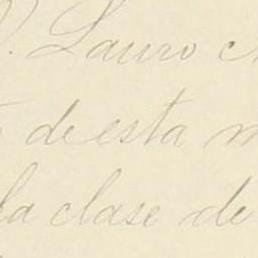 D. Lauro
de esta
la clase de